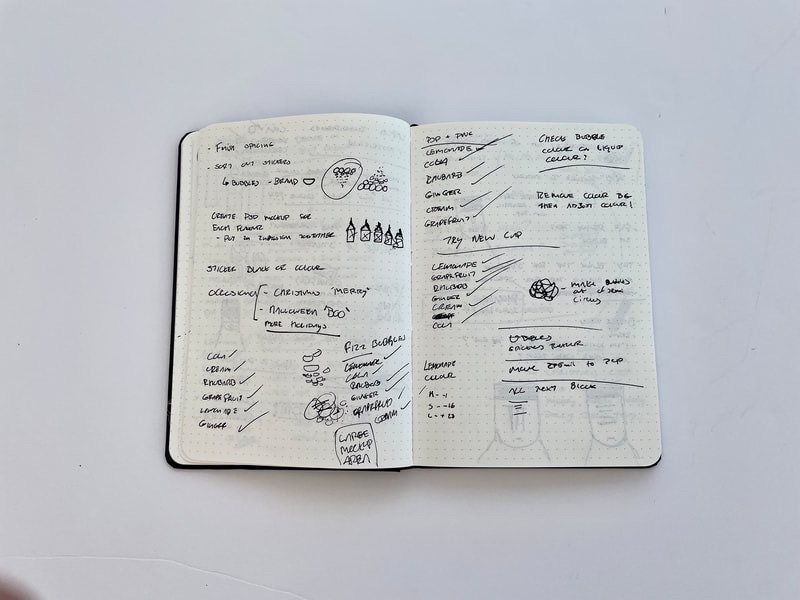 - FINISH SPACING
- SORT OUT STICKERS
6 BUBBLES - BRAND
CREATE POD MOCKUP FOR
EACH FLAVOUR
- PUT IN TOGETHER
STICKER BLACK OR COLOUR
OCCASIONS
- CHRISTMAS "MERRY"
- HALLOWEEN "BOO"
MORE HOLIDAYS
COLA
CREAM
RHUBARB
GRAPEFRUIT
LEMONADE
GINGER
FIZZ BUBBLES
LEMONADE
COLA
RHUBARB
GINGER
GRAPEFRUIT
CREAM
LARGE
MOCKUP
AREA
POP +
LEMONADE
COLA
RHUBARB
GINGER
CREAM
GRAPEFRUIT
TRY NEW CAP
LEMONADE
GRAPEFRUIT
RHUBARB
GINGER
CREAM
COLA
LEMONADE
COLOUR
M - -1
S - -16
L - + 28
CHECK BUBBLE
COLOUR ON LIQUID
COLOUR?
REMOVE COLOUR BG
THEN ADJUST COLOUR!
- MAKE BUBBLES
OUT OF
CIRCLES
BUBBLES
FLAVOUR
MOVE TO TOP
ALL TEXT BLACK